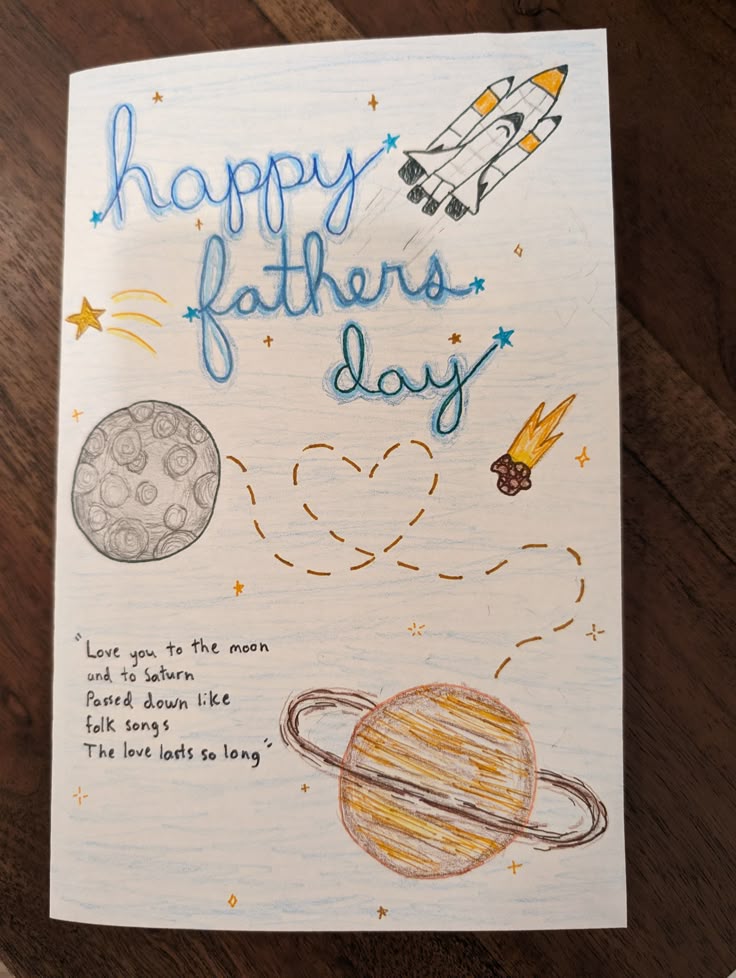 happy
fathers
day
"Love you to the moon
and to Saturn
Passed down like
folk songs
The love lasts so long"